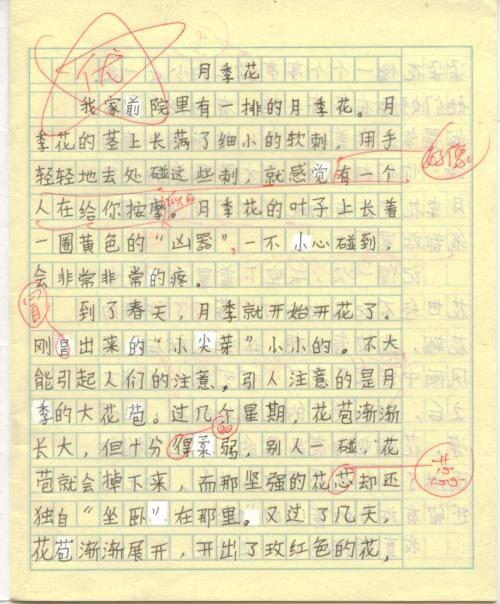 优
月季花
我家前院里有一排的月季花。月
季花的茎上长满了细小的软刺，用手
轻轻地去处碰这些刺，就感觉有一个
好像
人在给你按摩。月季花的叶子上长着
一圈黄色的“凶器”，一不小心碰到，
会非常非常的疼。
到了春天，月季就开始开花了。
冒
刚冒出来的“小尖芽”小小的。不大
能引起人们的注意。引人注意的是月
季的大花苞。过几个星期，花苞渐渐
长大，但十分得柔弱，别人一碰，花
的
苞就会掉下来，而那坚强的花却还
独自“坐卧”在那里。又过了几天，
花苞渐渐展开，开出了玫红色的花，